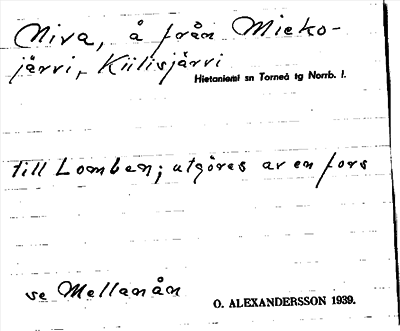 Niva, å från Mieko-
järvi, Kiilisjärvi
Hietaniemi sn Torneå tg Norrb. l.
till Lomben; utgöres av en fors
se Mellanån
O. ALEXANDERSSON 1939.